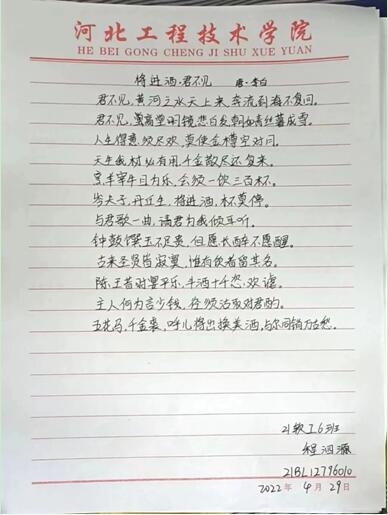 河北工程技术学院
HE BEI GONG CHENG JI SHU XUE YUAN
将进酒·君不见 唐·李白
君不见,黄河之水天上来,奔流到海不复回。
君不见,高堂明镜悲白发,朝如青丝暮成雪。
人生得意须尽欢,莫使金樽空对月。
天生我材必有用,千金散尽还复来。
烹羊宰牛且为乐,会须一饮三百杯。
岑夫子,丹丘生,将进酒,杯莫停。
与君歌一曲,请君为我倾耳听。
钟鼓馔玉不足贵,但愿长醉不愿醒。
古来圣贤皆寂寞,惟有饮者留其名。
陈王昔时宴平乐,斗酒十千恣欢谑。
主人何为言少钱,径须沽取对君酌。
五花马,千金裘,呼儿将出换美酒,与尔同销万古愁。
21软工6班
程泗源
21BL12796010
2022年4月29日